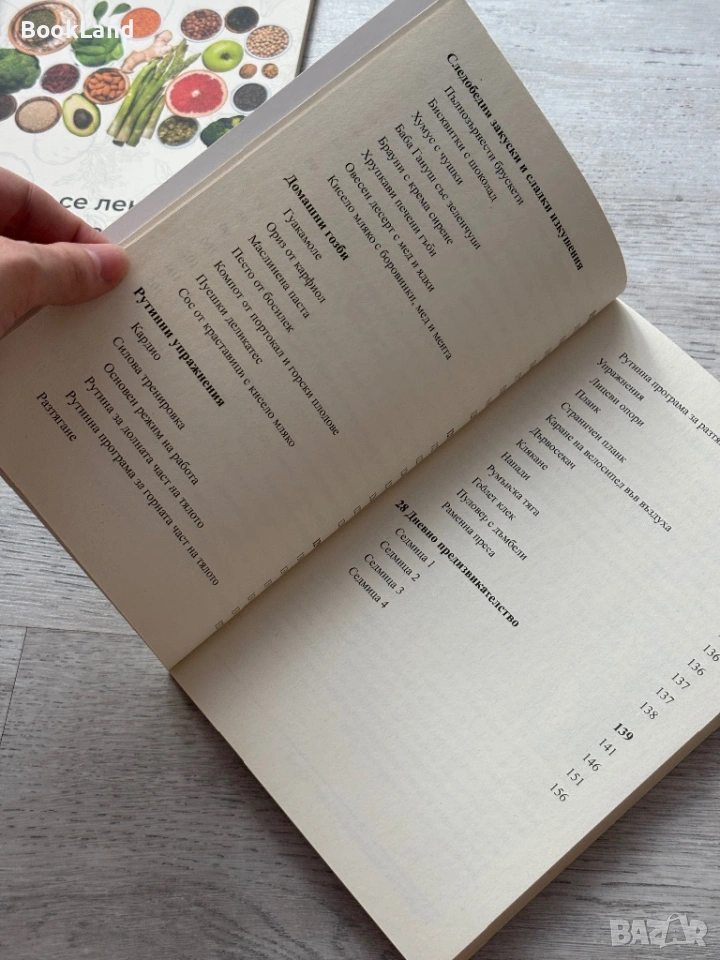 BookLand
се лек
Следобедни закуски и сладки изкушения
Пълнозърнести брускети
Бисквитки с шоколад
Хумус с чушки
Баба Гануш със зеленчуци
Брауни с крема сирене
Хрупкави печени гъби
Овесен десерт с мед и ядки
Кисело мляко с боровинки, мед и мента
Домашни гозби
Гуакамоле
Ориз от карфиол
Маслинена паста
Песто от босилек
Компот от портокал и горски плодове
Пуешки деликатес
Сос от краставици с кисело мляко
Рутинни упражнения
Кардио
Силова тренировка
Основен режим на работа
Рутина за долната част на тялото
Рутинна програма за горната част на тялото
Разтягане
Рутинна програма за разтя
Упражнения
Лицеви опори
Планк
Страничен планк
Каране на велосипед във въздуха
Дървосекач
Клякане
Напади
Румънска тяга
Гоблет клек
Пуловер с дъмбели
Раменна преса
28 Дневно предизвикателство
Седмица 1
Седмица 2
Седмица 3
Седмица 4
136
136
137
137
138
139
141
146
151
156
BAZAR